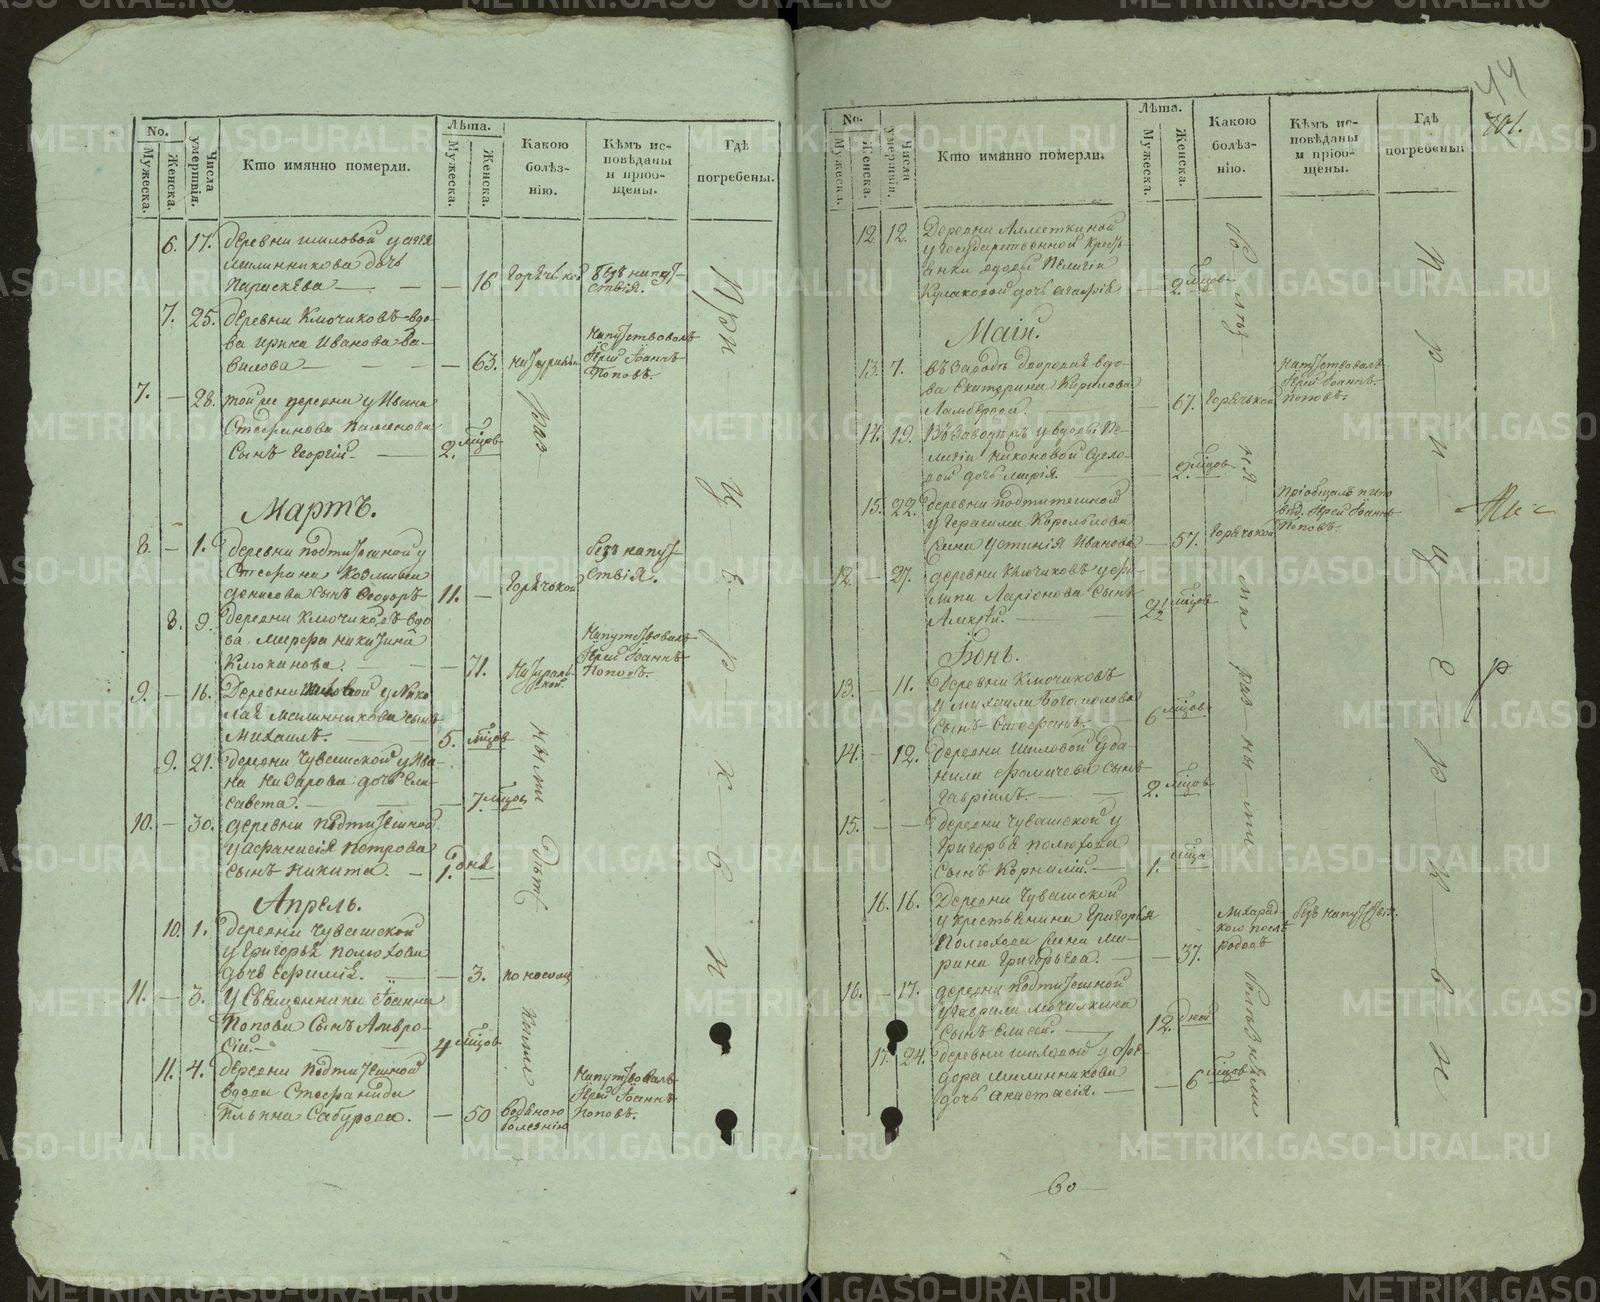 No.
Мужеска.
Женска.
Числа умертвія.
Кто имянно померли.
Лѣта.
Мужеска.
Женска.
Какою болѣз-
нію.
Кѣмъ ис-
повѣданы
и пріоб-
щены.
Гдѣ
погребены.
6. 17. деревни Шиловой у
Мельникова дочь
Параскева — 16 горячькой безъ напут-
ствія.
7. 25. деревни Ключиковъ вдо-
ва Ирина Иванова Ва-
вилова — 63. Напутствовалъ
Іерей Іоаннъ
Поповъ.
7. — 28. той же деревни у Ивана
Стефанова Пименова
сынъ Георгій. — 2. мѣсцовъ
Мартъ.
8. — 1. деревни Подтитешной у
Стефана Козмина
Денисова сынъ Ѳеодоръ 11. — горячькой безъ напут-
ствія.
8. 9. деревни Ключиковъ вдо-
ва Марфа Никитина
— 71. Натураль-
ной. Напутствовалъ
Іерей Іоаннъ
Поповъ.
9. — 16. Деревни Шиловой у Нико-
лая Мельникова сынъ
Михаилъ. — 5. мѣсцовъ
9. 21. деревни Чувашской у Ива-
на Назарова дочь Ели-
савета. — 7 мѣсцовъ
10. — 30. деревни Подтитешной
у Афанасія Петрова
сынъ Никита. — 1. дня
Апрель.
10. 1. деревни Чувашской
у Григорья Полюхова
дочь Ефимія. — 3. поносомъ
11. — 3. У Священника Іоанна
Попова Сынъ Амвро-
сій. — 4 мѣсцовъ
11. 4. деревни Подтитешной
вдова Стефанида
Ильина Сабурова. — 50 водяною
болезнію Напутствовалъ
Іерей Іоаннъ
Поповъ.
разными дѣтскими
При Церкви
44
701.
No.
Мужеска.
Женска.
Числа умертвія.
Кто имянно померли.
Лѣта.
Мужеска.
Женска.
Какою
болѣз-
нію.
Кѣмъ ис-
повѣданы
и пріоб-
щены.
Гдѣ
погребены.
12 12. Деревни Алметкиной
у государственной кресть-
янки вдовы Пелагіи
Кулаковой дочь Агафія — 2. мѣсцовъ
Маій.
13. 7. въ Заводѣ дворовая вдо-
ва Екатерина Кирилова
— 67. горячькой Напутствовалъ
Іерей Іоаннъ
Поповъ.
14. 19. Въ Заводѣ у вдовы Пе-
лагіи Никоновой
дочь Марія. — 2. мѣсцовъ
15. 22. деревни Подтитешной
у Герасима
Устинія Иванова — 57. горячькой Пріобщалъ и испо-
вѣд. Іерей Іоаннъ
Поповъ.
12. — 27. деревни Ключиковъ у Фи-
липа Ларіонова сынъ
Алексѣй. — 2½ мѣсцовъ
Іюнь.
13. — 11. деревни Ключиковъ
у Михаила Богомолова
сынъ Стефанъ. — 6 мѣсцовъ
14. — 12. деревни Шиловой у Да-
нила Фомичева сынъ
Гавріилъ. — 2. мѣсцовъ
15. — — деревни Чувашской у
Григорья Полюхова
сынъ Корнилій. — 1. мѣсца
16. 16. Деревни Чувашской
у крестьянина Григорья
Полюхова жена Ма-
рина Григорьева. — 37. лихорад-
кою послѣ
родовъ безъ напутствія.
16. — 17. деревни Подтитешной
у Гаврила
сынъ Елисей. — 12. дней
17. 24. деревни Шиловой у Фео-
дора Мельникова
дочь Анастасія. — 6 мѣсцовъ
разными болезньми
При Церкви
60
METRIKI.GASO-URAL.RU